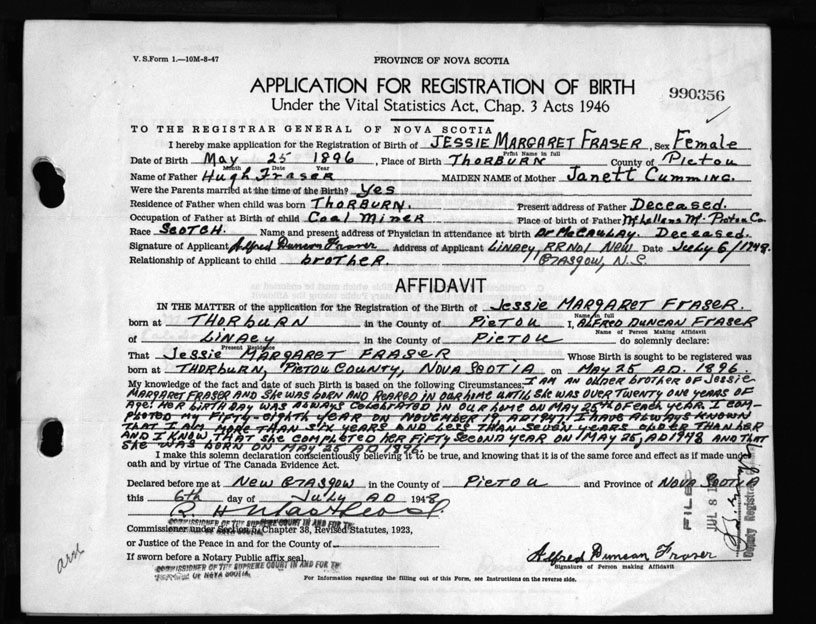 V. S. Form 1.—10M-8-47
PROVINCE OF NOVA SCOTIA
APPLICATION FOR REGISTRATION OF BIRTH
990356
Under the Vital Statistics Act, Chap. 3 Acts 1946
TO THE REGISTRAR GENERAL OF NOVA SCOTIA
I hereby make application for the Registration of Birth of JESSIE MARGARET FRASER, Sex Female
Print Name in full
Date of Birth May 25 1896, Place of Birth THORBURN County of Pictou
Month Date Year
Name of Father Hugh Fraser MAIDEN NAME of Mother Janett Cumming.
Were the Parents married at the time of the Birth? Yes
Residence of Father when child was born THORBURN. Present address of Father Deceased.
Occupation of Father at Birth of child Coal Miner Place of birth of Father McLellans Mt. Pictou Co.
Race SCOTCH. Name and present address of Physician in attendance at birth Dr McCAULAY. Deceased.
Signature of Applicant Alfred Duncan Fraser Address of Applicant LINACY, RRNO1 NEW Date July 6/1948.
Relationship of Applicant to child brother. GLASGOW, N.S.
AFFIDAVIT
IN THE MATTER of the application for the Registration of the Birth of Jessie MARGARET FRASER.
Name in full
born at THORBURN in the County of PICTOU I, ALFRED DUNCAN FRASER
Name of Person Making Affidavit
of LINACY in the County of PICTOU do solemnly declare:
Present Residence
That Jessie MARGARET FRASER Whose Birth is sought to be registered was
born at THORBURN, PICTOU COUNTY, NOVA SCOTIA on MAY 25 A.D. 1896.
My knowledge of the fact and date of such Birth is based on the following Circumstances: I AM AN OLDER BROTHER OF JESSIE
MARGARET FRASER AND SHE WAS BORN AND REARED IN OUR HOME UNTIL SHE WAS OVER TWENTY ONE YEARS OF
AGE. HER BIRTHDAY WAS ALWAYS CELEBRATED IN OUR HOME ON MAY 25TH OF EACH YEAR. I COM-
PLETED MY FIFTY-EIGHTH YEAR ON NOVEMBER I HAVE ALWAYS KNOWN
THAT I AM MORE THAN SIX YEARS AND LESS THAN SEVEN YEARS OLDER THAN HER
AND I KNOW THAT SHE COMPLETED HER FIFTY SECOND YEAR ON MAY 25, AD 1948 AND THAT
SHE WAS BORN ON MAY 25 AD 1896.
I make this solemn declaration conscientiously believing it to be true, and knowing that it is of the same force and effect as if made under
oath and by virtue of The Canada Evidence Act.
Declared before me at NEW GLASGOW in the County of PICTOU and Province of NOVA SCOTIA
this 6th day of JULY AD 1948
COMMISSIONER OF THE SUPREME COURT IN AND FOR THE
Commissioner under Section 5, Chapter 38, Revised Statutes, 1923,
or Justice of the Peace in and for the County of
If sworn before a Notary Public affix seal.
COMMISSIONER OF THE SUPREME COURT IN AND FOR THE
OF NOVA SCOTIA.
Alfred Duncan Fraser
Signature of Person making Affidavit
For Information regarding the filling out of this Form, see Instructions on the reverse side.
FILED
JUL 8
Deputy Registrar